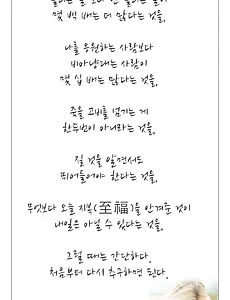 몇 백 배는 더 많다는 것을,
나를 응원하는 사람보다
비아냥대는 사람이
몇 십 배는 많다는 것을,
죽을 고비를 넘기는 게
한두번이 아니라는 것을,
질 것을 알면서도
뛰어들어야 한다는 것을,
무엇보다 오늘 지복(至福)을 안겨준 것이
내일은 아닐 수 있다는 것을,
그럴 때는 간단하다.
처음부터 다시 추구하면 된다.